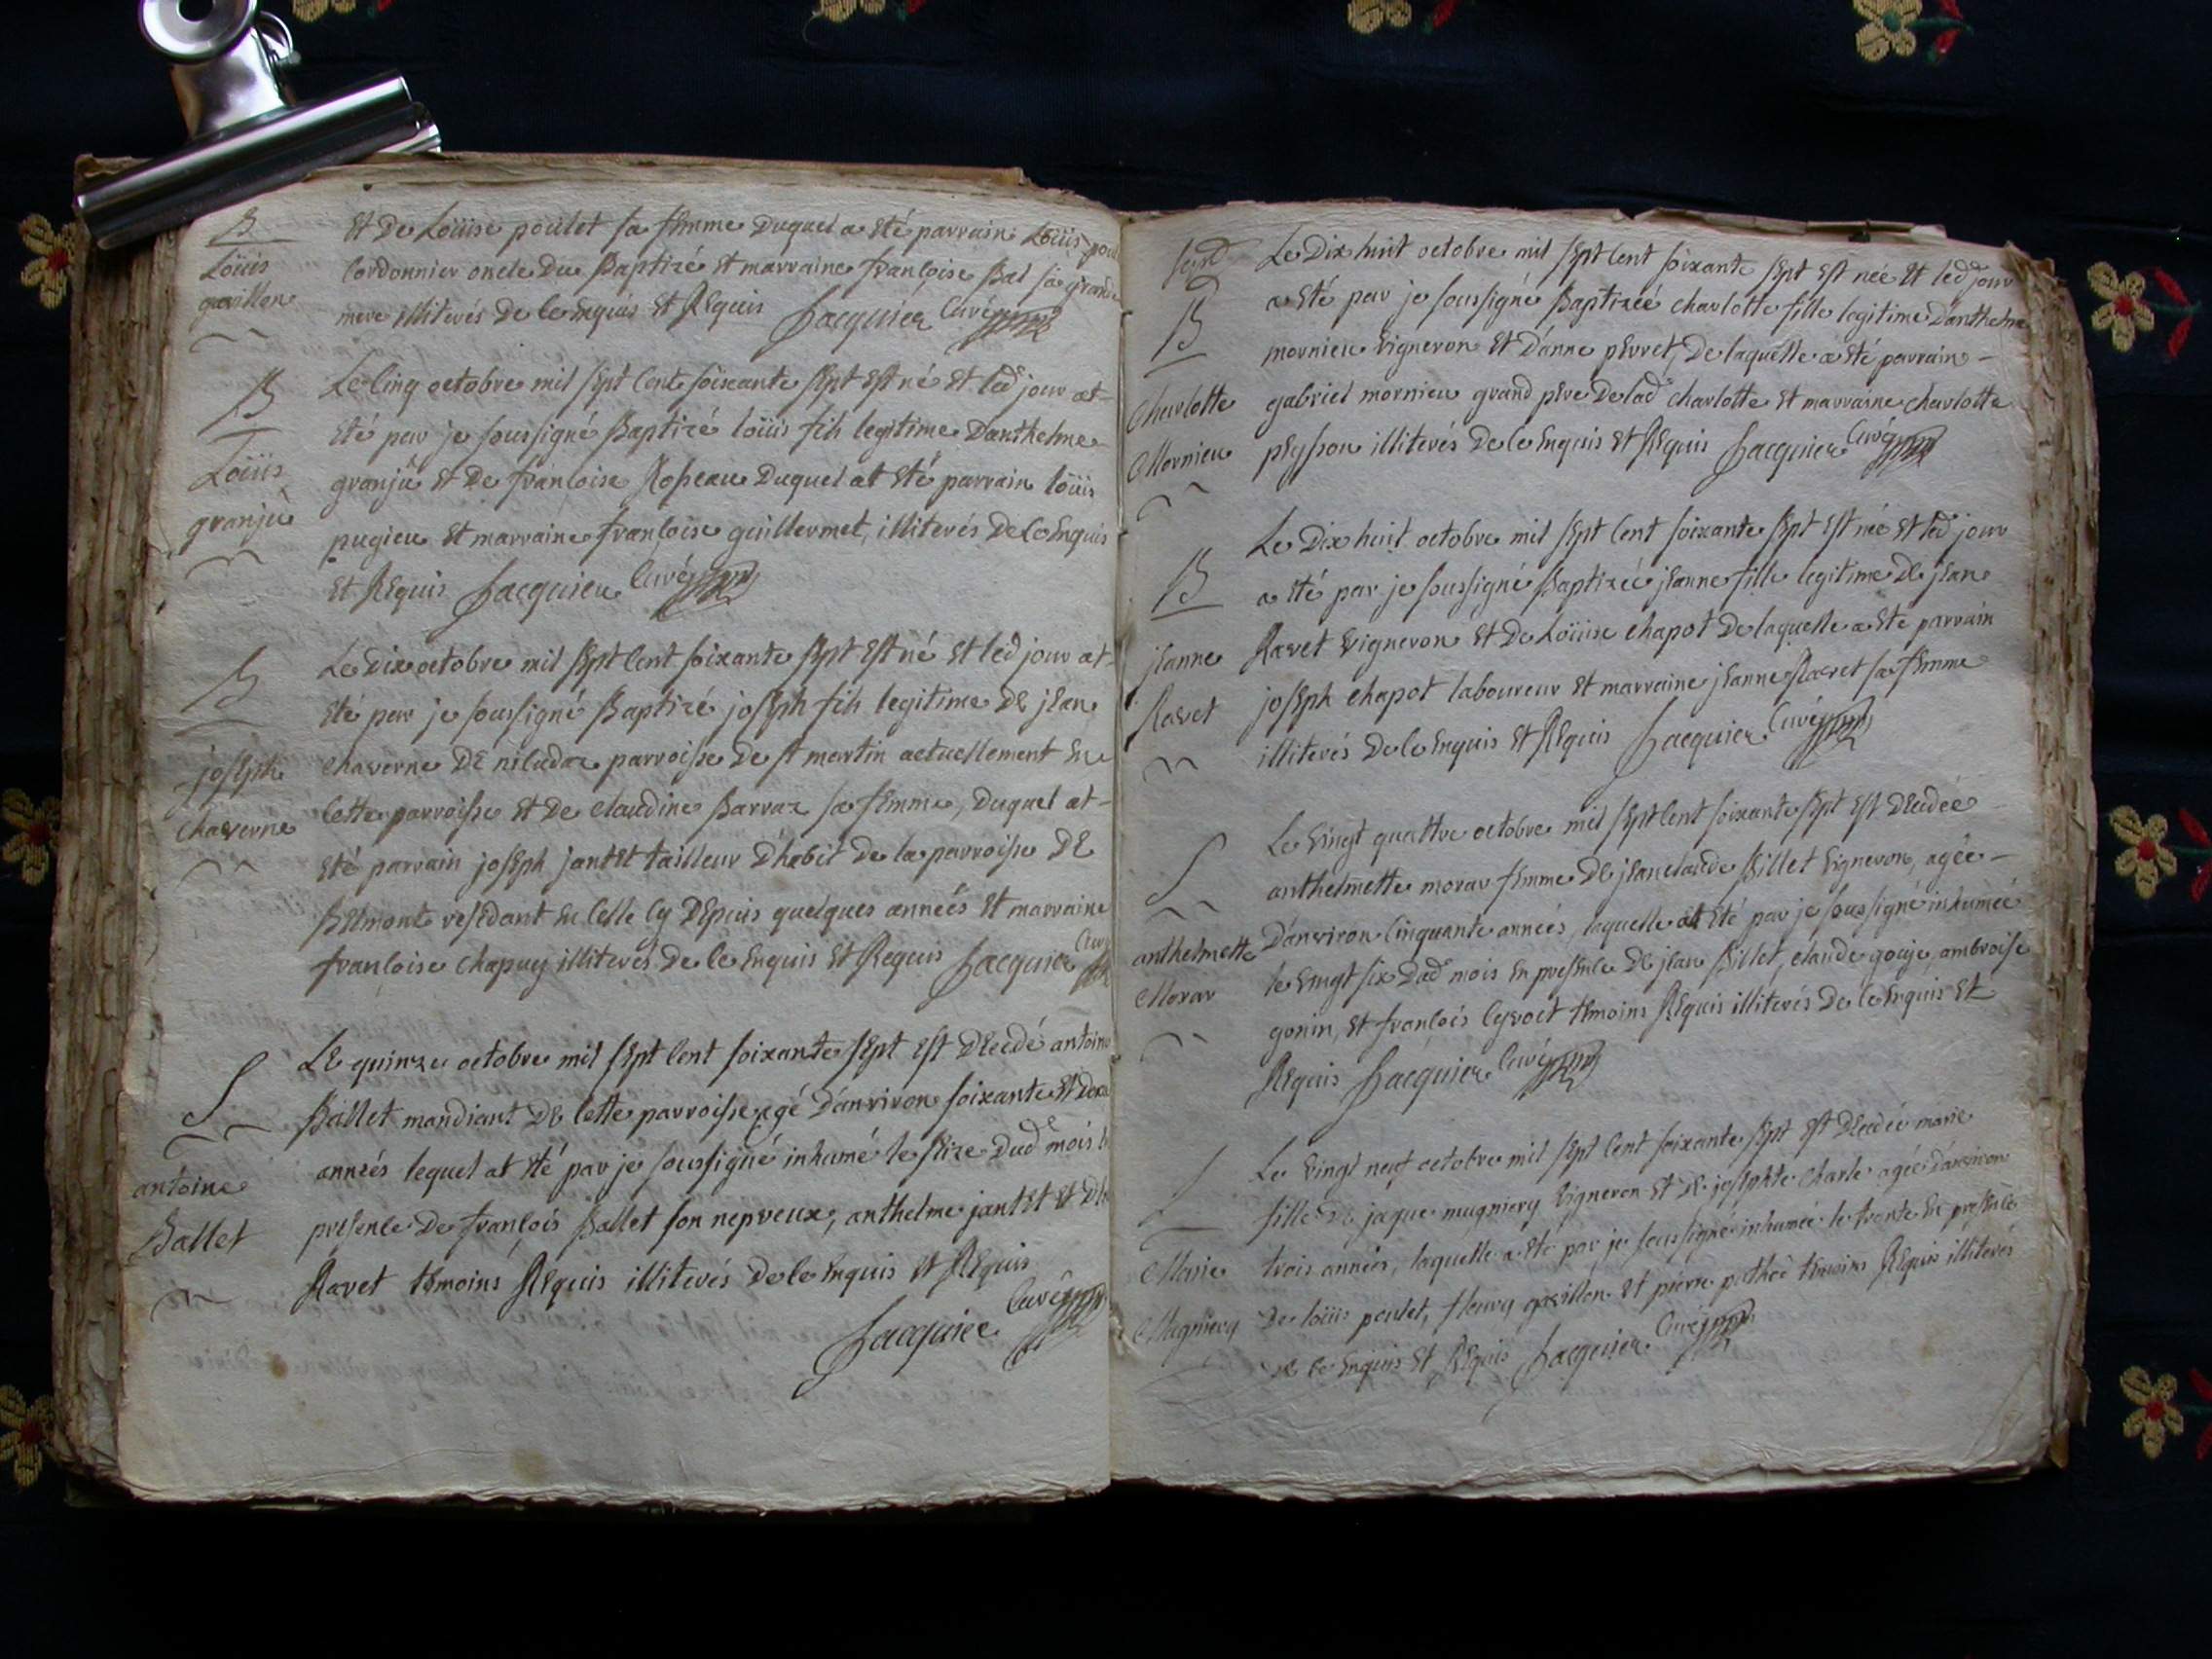 B
Loüis
gavillon
et de Loüise poulet sa femme duquel a été parrain Loüis
Cordonnier oncle du Baptizé et marraine françoise Bal sa grande
mere illiterés de ce enquis et Requis Jacquier Curé
B
Loüis
granju
Le Cinq octobre mil sept cent soixante sept est né et led jour at
été par je soussigné Baptizé loüis fils legitime danthelme
granju et de françoise Roseau duquel at été parrain loüis
pugieu et marraine françoise guillermet, illiterés de ce enquis
et Requis Jacquier Curé
B
joseph
Chaverne
Le dix octobre mil sept cent soixante sept est né et led jour at
été par je soussigné Baptizé joseph fils legitime de jean
Chaverne de niludaz parroisse de st martin actuellement en
cette parroisse et de claudine Barraz sa femme, duquel at
été parrain joseph jantet tailleur d'habit de la parroisse de
Belmont resedant en celle cy depuis quelques années et marraine
françoise Chapuy illiterés de ce enquis et Requis Jacquier Curé
S
antoine
Ballet
Le quinze octobre mil sept cent soixante sept est decedé antoine
Ballet mandiant de cette parroisse agé d'anviron soixante et
années lequel at été par je soussigné inhumé le seize dud mois
presence de françois Ballet son nepveux, anthelme jantet et
Ravet temoins Requis illiterés de ce enquis et Requis
Jacquier Curé
B
Charlotte
Mornieu
Le Dix huit octobre mil sept cent soixante sept est née et led jour
a été par je soussigné Baptizée charlotte fille legitime danthelme
mornieu vigneron et d'anne perret, de laquelle a été parrain
gabriel mornieu grand pere de lad charlotte et marraine charlotte
peysson illiterés de ce enquis et Requis Jacquier Curé
B
jeanne
Ravet
Le Dix huit octobre mil sept cent soixante sept est née et led jour
a été par je soussigné Baptizée jeanne fille legitime de jean
Ravet vigneron et de Loüise chapot de laquelle a été parrain
joseph chapot laboureur et marraine jeanne Ravet sa femme
illiterés de ce enquis et Requis Jacquier Curé
S
anthelmette
Morar
Le vingt quattre octobre mil sept cent soixante sept est decedée
anthelmette morar femme de jean claude Billet vigneron, agée
d'anviron cinquante années, laquelle at été par je soussigné inhumée
le vingt six dud mois en presence de jean Billet, claude gouje, ambroise
gonin, et françois Cyvoct temoins Requis illiterés de ce enquis et
Requis Jacquier Curé
S
Marie
Mugniery
Le vingt neuf octobre mil sept cent soixante sept est decedée marie
fille de jaque mugniery vigneron et de josephte Charle agée d'anviron
trois années, laquelle a été par je soussigné inhumée le trente en presence
de loüis poulet, fleury gavillon et pierre pothee temoins Requis illiterés
de ce enquis et Requis Jacquier Curé